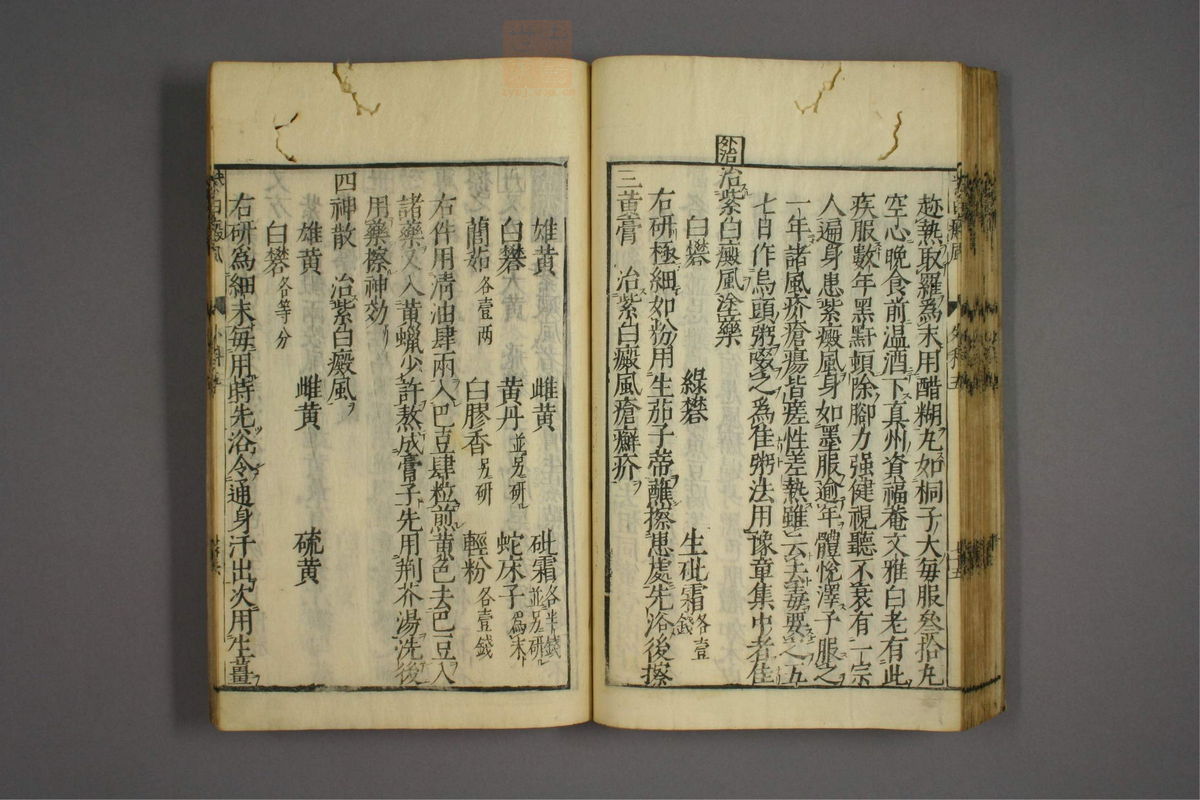 趂熱取羅爲末用醋糊丸如桐子大每服叁拾丸
空心晚食前温酒下真州資福菴文雅白老有此
疾服數年黑黚頓除腳力强健視聽不衰有一宗
人遍身患紫癜風身如墨服逾年體悅澤子服之
一年諸風疥瘡瘍皆瘥性差熱雖云去毒要之五
七日作烏頭粥啜之爲佳粥法用豫章集中者佳
外治 治紫白癜風塗藥
白礬 綠礬 生砒霜各壹錢
右研極細如粉用生茄子蒂蘸擦患處先浴後擦
三黄膏 治紫白癜風瘡癬疥
雄黄 雌黄 砒霜各半錢並另研
白礬 黄丹並另研 蛇床子爲末
䕡茹各壹两 白膠香另研 輕粉各壹錢
右件用淸油肆兩入巴豆肆粒煎黄色去巴豆入
諸藥又入黄蠟少許熬成膏子先用荆芥湯洗後
用藥擦神効
四神散 治紫白癜風
雄黄 雌黄 硫黄
白礬各等分
右研爲細末每用時先浴令通身汗出次用生薑